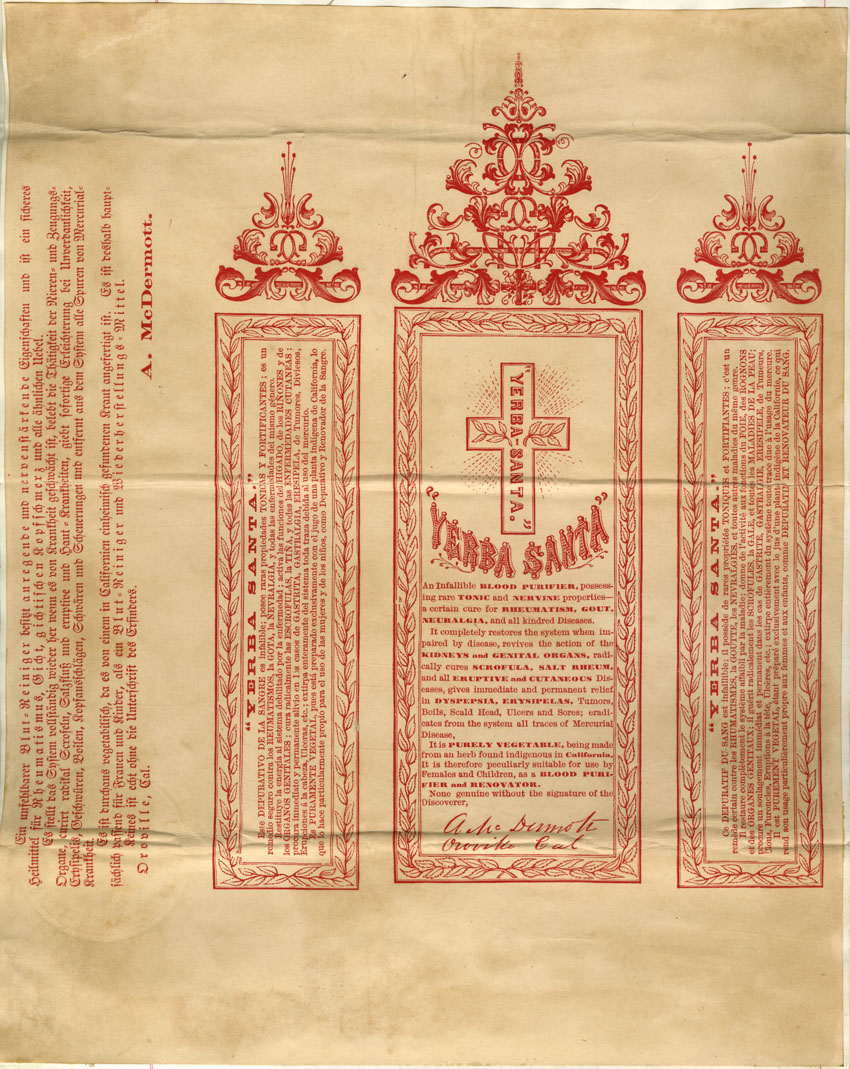 Ein unfehlbarer Blut-Reiniger besitzt anregende und nervenstärkende Eigenschaften und ist ein sicheres
Heilmittel für Rheumatismus, Gicht, gichtischen Kopfschmerz und alle ähnlichen Uebel.
Es stellt das System vollständig wieder her wenn es von Krankheit geschwächt ist, belebt die Thätigkeit der Nieren- und Zeugungs-
Organe, curirt radikal Scrofeln, Salzfluß und eruptive und Haut-Krankheiten, giebt sofortige Erleichterung bei Unverdaulichkeit,
Erysipelis, Geschwüren, Beilen, Kopfausschlägen, Schwären und Scheuerungen und entfernt aus dem System alle Spuren von Mercurial-
Krankheit.
Es ist durchaus vegetabilisch, da es von einem in Californien einheimisch gefundenen Kraut angefertigt ist. Es ist deshalb haupt-
sächlich passend für Frauen und Kinder, als ein Blut-Reiniger und Wiederherstellungs-Mittel.
Keines ist echt ohne die Unterschrift des Erfinders.
Oroville, Cal.
A. McDermott.
"YERBA SANTA."
Este DEPURATIVO DE LA SANGRE es infalible; posee raras propiedades TONICAS Y FORTIFICANTES; es un
remedio seguro contra los REUMATISMOS, la GOTA, la NEVRALGIA, y todas las enfermedades del mismo género.
Restituye la energia al sistema debilitado por la enfermedad; activa las funciones del HIGADO, de los RIÑONES y de
los ORGANOS GENITALES; cura radicalmente las ESCROFULAS, la TIÑA, y todas las ENFERMEDADES CUTANEAS;
procura immediato y permanente alivio en los casos de GASTRITA, GASTRALGIA, ERESIPELA, de Tumores, Diviesos,
Erupciones á la cabeza, Ulceras, etc.; extirpa enteramente del sistema toda traza debida al uso del mercurio.
Es PURAMENTE VEGETAL, pues está preparado exclusivamente con el jugo de una planta indigena de California, lo
que lo hace particularmente propio para el uso de las mujeres y de los niños, como Depurativo y Renovador de la Sangre.
"YERBA-SANTA."
"YERBA SANTA"
An Infallible BLOOD PURIFIER, possess-
ing rare TONIC and NERVINE properties—
a certain cure for RHEUMATISM, GOUT,
NEURALGIA, and all kindred Diseases.
It completely restores the system when im-
paired by disease, revives the action of the
KIDNEYS and GENITAL ORGANS, radi-
cally cures SCROFULA, SALT RHEUM,
and all ERUPTIVE and CUTANEOUS Dis-
eases, gives immediate and permanent relief
in DYSPEPSIA, ERYSIPELAS, Tumors,
Boils, Scald Head, Ulcers and Sores; eradi-
cates from the system all traces of Mercurial
Disease,
It is PURELY VEGETABLE, being made
from an herb found indigenous in California.
It is therefore peculiarly suitable for use by
Females and Children, as a BLOOD PURI-
FIER and RENOVATOR.
None genuine without the signature of the
Discoverer,
A. Mc Dermott
Oroville Cal
"YERBA SANTA."
Ce DEPURATIF DU SANG est infaillible; il possède de rares propriétés TONIQUES et FORTIFIANTES; c'est un
remède certain contre les RHEUMATISMES, la GOUTTE, les NEVRALGIES, et toutes autres maladies du même genre.
Il restaure complètement le système affaibli par la maladie; donne de l'activité aux fonctions du FOIE, des ROGNONS
et des ORGANES GENITAUX; il guérit radicalement les SCROFULES, la GALE, et toutes les MALADIES DE LA PEAU;
procure un soulagement immédiat et permanent dans les cas de GASTRITE, GASTRALGIE, ERESIPELE, de Tumeurs,
Clous, Furoncles, Eruptions à la tête, Ulcères, etc.; extirpe entièrement du système toute trace due à l'usage du mercure.
Il est PUREMENT VEGETAL, étant préparé exclusivement avec le jus d'une plante indigène de la Californie, ce qui
rend son usage particulièrement propre aux femmes et aux enfants, comme DEPURATIF ET RENOVATEUR DU SANG.